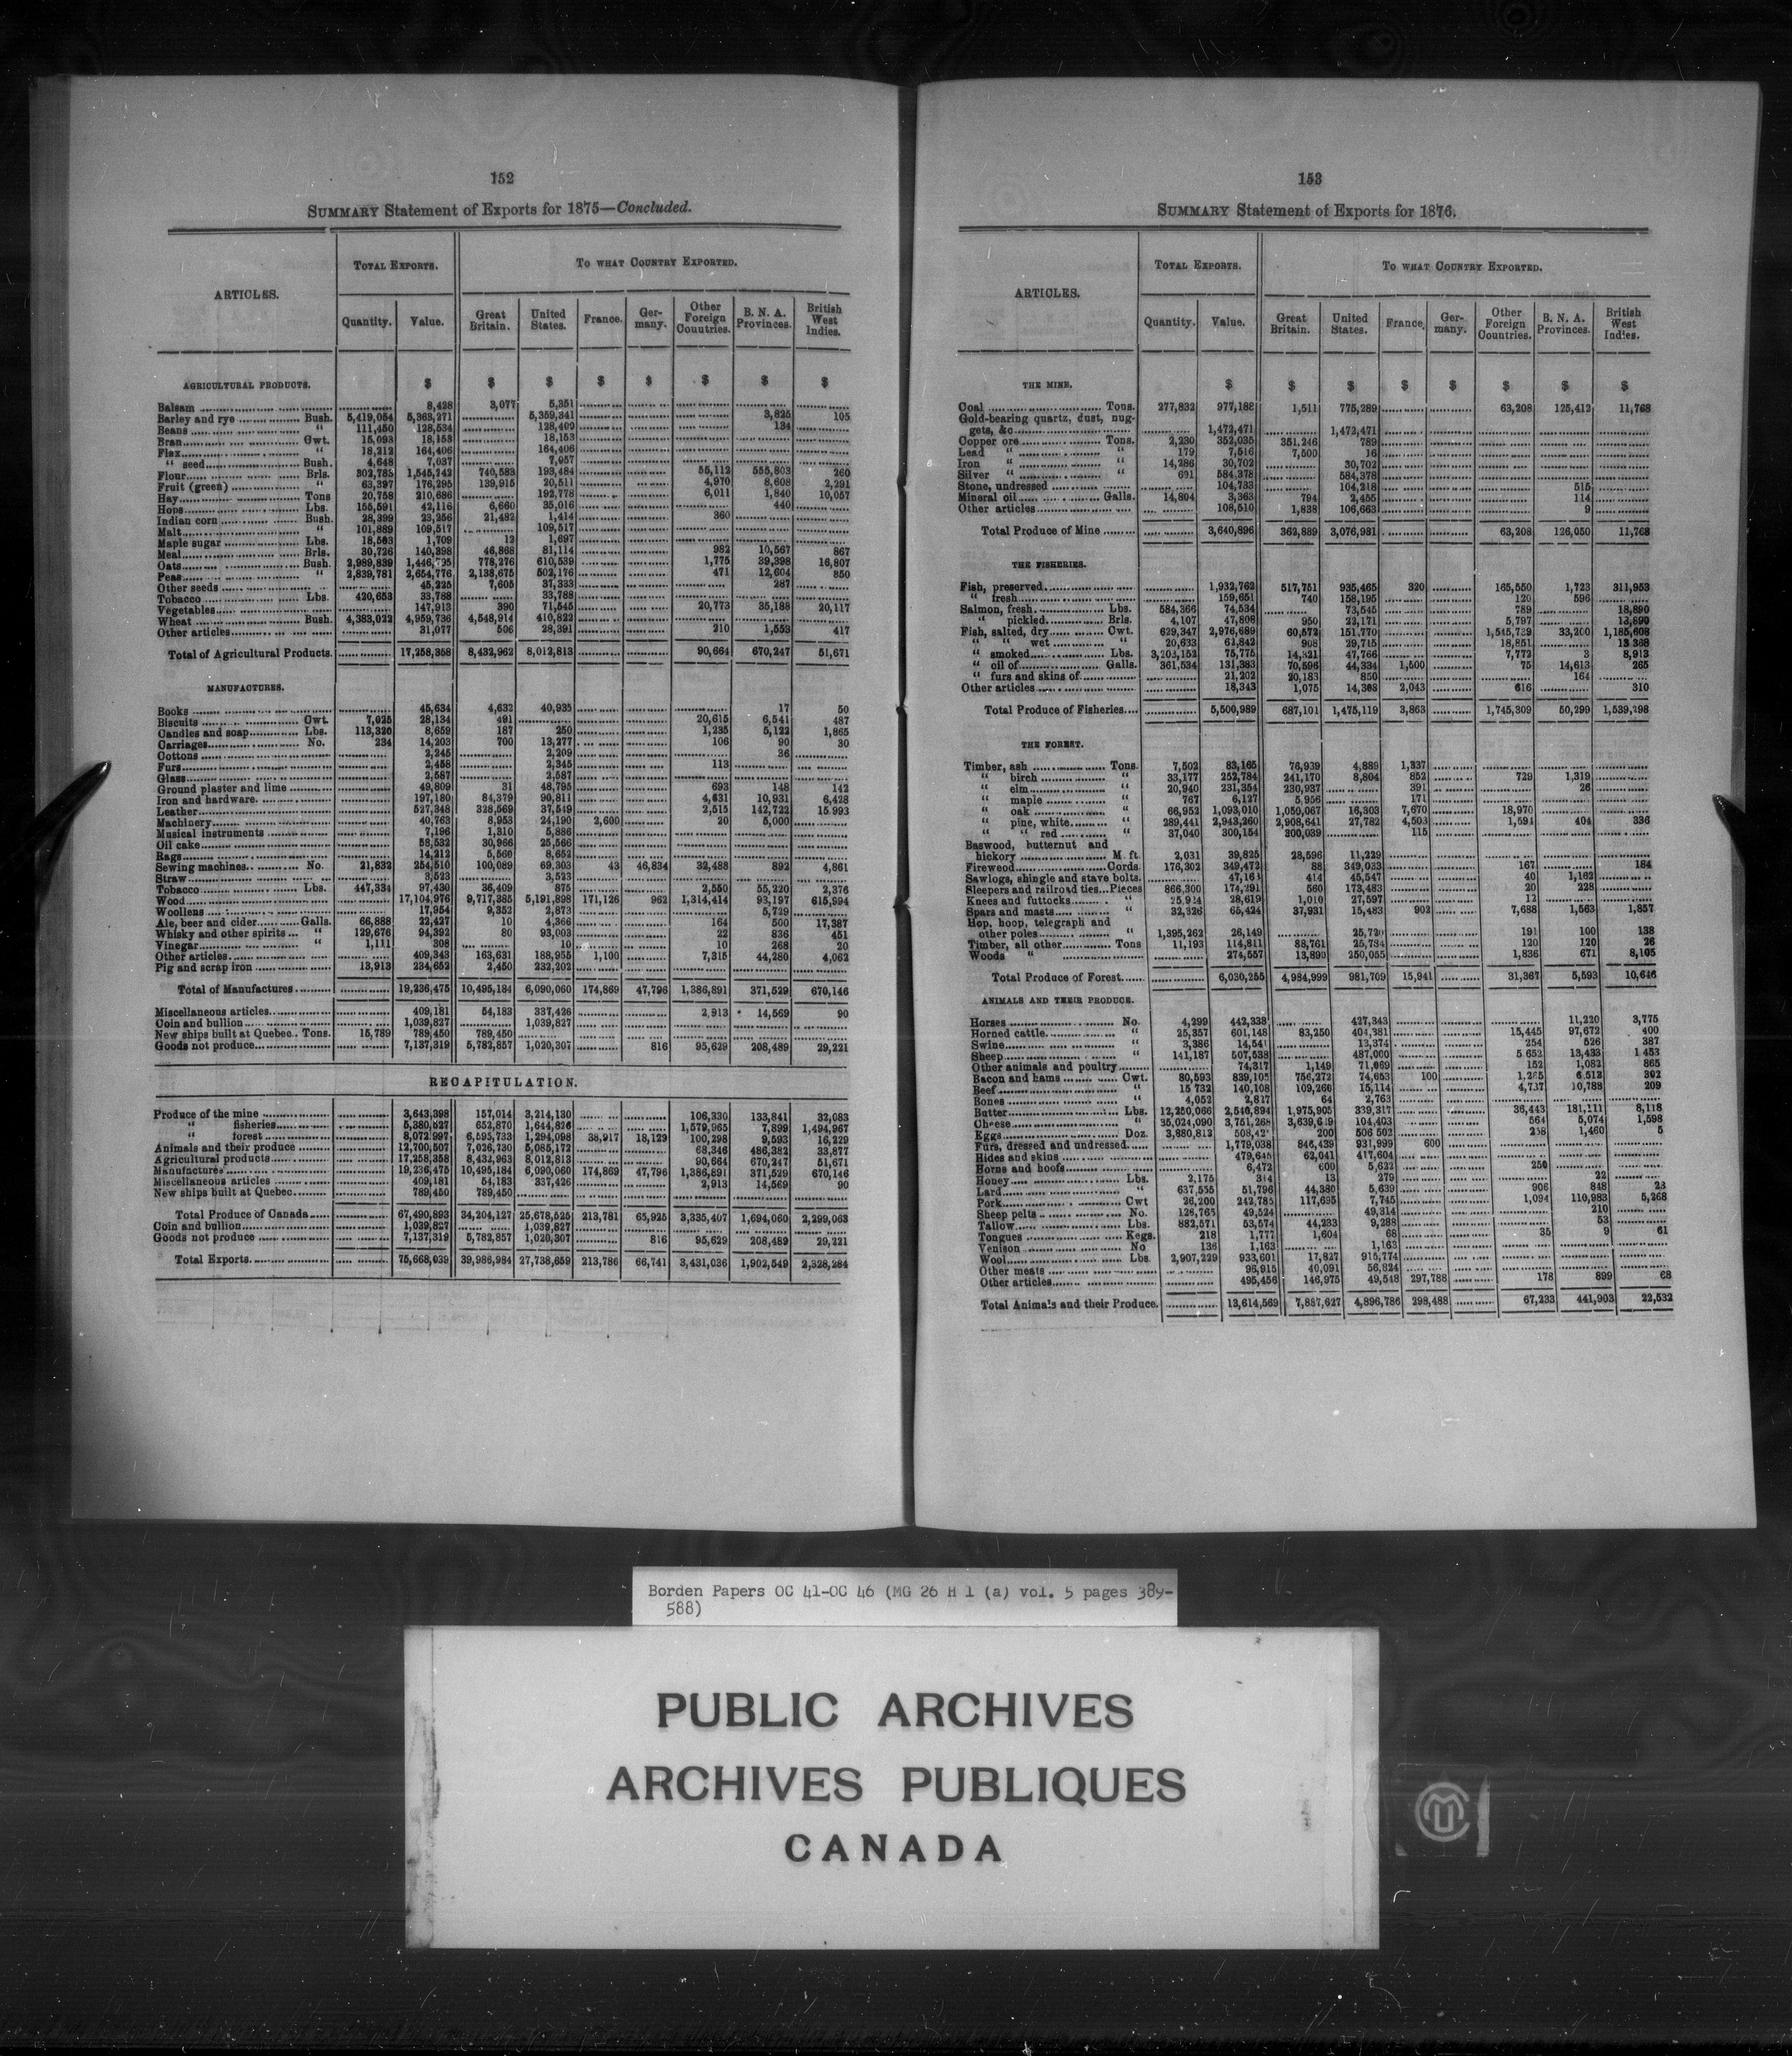 152
SUMMARY Statement of Exports for 1875—Concluded.
ARTICLES. TOTAL EXPORTS. TO WHAT COUNTRY EXPORTED.
Quantity. Value. Great Britain. United States. France. Germany. Other Foreign Countries. B. N. A. Provinces. British West Indies.
AGRICULTURAL PRODUCTS. $ $ $ $ $ $ $ $
Balsam 8,428 3,077 5,351
Barley and rye Bush. 5,419,054 5,363,271 5,359,341 3,825 105
Beans " 111,450 128,534 128,400 134
Bran Cwt. 15,093 18,153 18,153
Flax " 18,212 164,406 164,406
" seed Bush. 4,648 7,037 7,057
Flour Brls. 302,783 1,545,242 740,583 193,484 55,112 555,803 260
Fruit (green) " 63,397 176,295 139,915 20,511 4,970 8,608 2,291
Hay Tons 20,758 210,686 192,778 6,011 1,840 10,057
Hops Lbs. 155,591 42,116 6,660 35,016 440
Indian corn Bush. 28,399 23,256 21,482 1,414 360
Malt " 101,889 109,517 109,517
Maple sugar Lbs. 18,503 1,709 12 1,697
Meal Brls. 30,726 140,398 46,868 81,114 982 10,567 867
Oats Bush. 2,989,839 1,446,795 778,276 610,539 1,775 39,398 16,807
Peas " 2,839,781 2,654,776 2,138,675 502,176 471 12,604 850
Other seeds 45,225 7,605 37,333 287
Tobacco Lbs. 420,653 33,788 33,788
Vegetables 147,913 390 71,545 20,773 35,188 20,117
Wheat Bush. 4,383,022 4,959,736 4,548,914 410,822
Other articles 31,077 506 28,391 210 1,553 417
Total of Agricultural Products. 17,258,358 8,432,962 8,012,813 90,664 670,247 51,671
MANUFACTURES.
Books 45,634 4,632 40,935 17 50
Biscuits Cwt. 7,025 28,134 491 20,615 6,541 487
Candles and soap Lbs. 113,320 8,659 187 250 1,235 5,122 1,865
Carriages No. 234 14,203 700 13,277 106 90 30
Cottons 2,245 2,209 36
Furs 2,458 2,345 113
Glass 2,587 2,587
Ground plaster and lime 49,809 31 48,795 693 148 142
Iron and hardware. 197,180 84,379 90,811 4,631 10,931 6,428
Leather 527,348 328,569 37,549 2,515 142,722 15 993
Machinery 40,763 8,953 24,190 2,600 20 5,000
Musical instruments 7,196 1,310 5,886
Oil cake 58,532 30,966 25,566
Rags 14,212 5,560 8,652
Sewing machines. No. 21,832 254,510 100,089 69,303 43 46,834 32,488 892 4,861
Straw 3,523 3,523
Tobacco Lbs. 447,334 97,430 36,409 875 2,550 55,220 2,376
Wood 17,104,976 9,717,385 5,191,898 171,126 962 1,314,414 93,197 615,994
Woollens 17,954 9,352 2,873 5,729
Ale, beer and cider Galls. 66,888 22,427 10 4,366 164 500 17,387
Whisky and other spirits " 129,676 94,392 80 93,003 22 836 451
Vinegar " 1,111 308 10 10 268 20
Other articles 409,343 163,631 188,955 1,100 7,315 44,280 4,062
Pig and scrap iron 13,913 234,652 2,450 232,202
Total of Manufactures 19,236,475 10,495,184 6,090,060 174,869 47,796 1,386,891 371,529 670,146
Miscellaneous articles 409,181 54,183 337,426 2,913 14,569 90
Coin and bullion 1,039,827 1,039,827
New ships built at Quebec Tons. 15,789 789,450 789,450
Goods not produce 7,137,319 5,782,857 1,020,307 816 95,629 208,489 29,221
RECAPITULATION.
Produce of the mine 3,643,398 157,014 3,214,130 106,330 133,841 32,083
" fisheries 5,380,527 652,870 1,644,826 1,579,965 7,899 1,494,967
" forest 8,072,997 6,595,733 1,294,098 38,917 18,129 100,298 9,593 16,229
Animals and their produce 12,700,507 7,026,730 5,085,172 68,346 486,382 33,877
Agricultural products 17,258,358 8,432,963 8,012,813 90,664 670,247 51,671
Manufactures 19,236,475 10,495,184 6,090,060 174,869 47,796 1,386,891 371,529 670,146
Miscellaneous articles 409,181 54,183 337,426 2,913 14,569 90
New ships built at Quebec 789,450 789,450
Total Produce of Canada 67,490,893 34,204,127 25,678,525 213,781 65,925 3,335,407 1,694,060 2,299,063
Coin and bullion 1,039,827 1,039,827
Goods not produce 7,137,319 5,782,857 1,020,307 816 95,629 208,489 29,221
Total Exports 75,668,039 39,986,984 27,738,659 213,786 66,741 3,431,036 1,902,549 2,328,284
153
SUMMARY Statement of Exports for 1876.
ARTICLES. TOTAL EXPORTS. TO WHAT COUNTRY EXPORTED.
Quantity. Value. Great Britain. United States. France. Germany. Other Foreign Countries. B. N. A. Provinces. British West Indies.
THE MINE. $ $ $ $ $ $ $ $
Coal Tons. 277,832 977,188 1,511 775,289 63,208 125,412 11,768
Gold-bearing quartz, dust, nuggets, &c 1,472,471 1,472,471
Copper ore Tons. 2,230 352,035 351,246 789
Lead " " 179 7,516 7,500 16
Iron " " 14,286 30,702 30,702
Silver " " 691 584,378 584,378
Stone, undressed 104,733 104,218 515
Mineral oil Galls. 14,804 3,363 794 2,455 114
Other articles 108,510 1,838 106,663 9
Total Produce of Mine 3,640,896 362,889 3,076,981 63,208 126,050 11,768
THE FISHERIES.
Fish, preserved 1,932,762 517,751 935,465 320 165,550 1,723 311,953
" fresh 159,651 740 158,195 120 596
Salmon, fresh Lbs. 584,366 74,534 73,545 789 18,890
" pickled Brls. 4,107 47,808 950 22,171 5,797 13,890
Fish, salted, dry Cwt. 629,347 2,976,689 60,572 151,770 1,545,739 33,200 1,185,608
" " wet " 20,633 62,842 908 29,715 18,851 13 368
" smoked Lbs. 3,203,152 75,775 14,321 47,766 7,772 3 8,913
" oil of Galls. 361,534 131,383 70,596 44,334 1,500 75 14,613 265
" furs and skins of 21,202 20,183 850 164
Other articles 18,343 1,075 14,308 2,043 616 310
Total Produce of Fisheries 5,500,989 687,101 1,475,119 3,863 1,745,309 50,299 1,539,298
THE FOREST.
Timber, ash Tons. 7,502 83,165 76,939 4,889 1,337
" birch " 33,177 252,784 241,170 8,804 852 729 1,319
" elm " 20,940 231,354 230,937 391 26
" maple " 767 6,127 5,956 171
" oak " 66,952 1,093,010 1,050,067 16,303 7,670 18,970
" pine, white " 289,441 2,943,260 2,908,641 27,782 4,503 1,594 404 336
" " red " 37,040 300,154 300,039 115
Baswood, butternut and hickory M. ft. 2,031 39,825 28,596 11,229
Firewood Cords 176,302 349,472 88 349,033 167 184
Sawlogs, shingle and stave bolts 47,163 414 45,547 40 1,162
Sleepers and railroad ties Pieces 866,300 174,291 560 173,483 20 228
Knees and futtocks " 25,924 28,619 1,010 27,597 12
Spars and masts " 32,326 65,424 37,931 15,483 902 7,688 1,563 1,857
Hop, hoop, telegraph and other poles " 1,395,262 26,149 25,720 191 100 138
Timber, all other Tons 11,193 114,811 88,761 25,784 120 120 26
Woods " 274,557 13,890 250,055 1,836 671 8,105
Total Produce of Forest 6,030,255 4,984,999 981,709 15,941 31,367 5,593 10,646
ANIMALS AND THEIR PRODUCE.
Horses No. 4,299 442,338 427,343 11,220 3,775
Horned cattle " 25,357 601,148 83,250 404,381 15,445 97,672 400
Swine " 3,386 14,541 13,374 254 526 387
Sheep " 141,187 507,538 487,000 5 652 13,433 1 453
Other animals and poultry 74,317 1,149 71,069 152 1,082 865
Bacon and hams Cwt. 80,593 839,105 756,272 74,653 100 1,265 6,513 302
Beef " 15 732 140,108 109,266 15,114 4,737 10,788 209
Bones " 4,052 2,817 64 2,763
Butter Lbs. 12,250,066 2,540,894 1,975,905 339,317 36,443 181,111 8,118
Cheese " 35,024,090 3,751,268 3,639,629 104,403 564 5,074 1,598
Eggs Doz. 3,880,812 508,42 200 506 502 258 1,460 5
Furs, dressed and undressed 1,779,038 846,439 931,999 600
Hides and skins 479,645 62,041 417,604
Horns and hoofs 6,472 600 5,622 250
Honey Lbs. 2,175 314 13 279 22
Lard " 637,555 51,796 44,380 5,639 906 848 23
Pork Cwt 26,200 242,785 117,695 7,745 1,094 110,983 5,268
Sheep pelts No. 126,765 49,524 49,314 210
Tallow Lbs. 882,571 53,574 44,233 9,288 53
Tongues Kegs. 218 1,777 1,604 68 35 9 61
Venison No 136 1,163 1,163
Wool Lbs. 2,907,229 933,601 17,827 915,774
Other meats 96,915 40,091 56,824
Other articles 495,456 146,975 49,548 297,788 178 899 68
Total Animals and their Produce. 13,614,569 7,887,627 4,896,786 298,488 67,233 441,903 22,532
Borden Papers OC 41-OC 46 (MG 26 H 1 (a) vol. 5 pages 389-
588)
PUBLIC ARCHIVES
ARCHIVES PUBLIQUES
CANADA